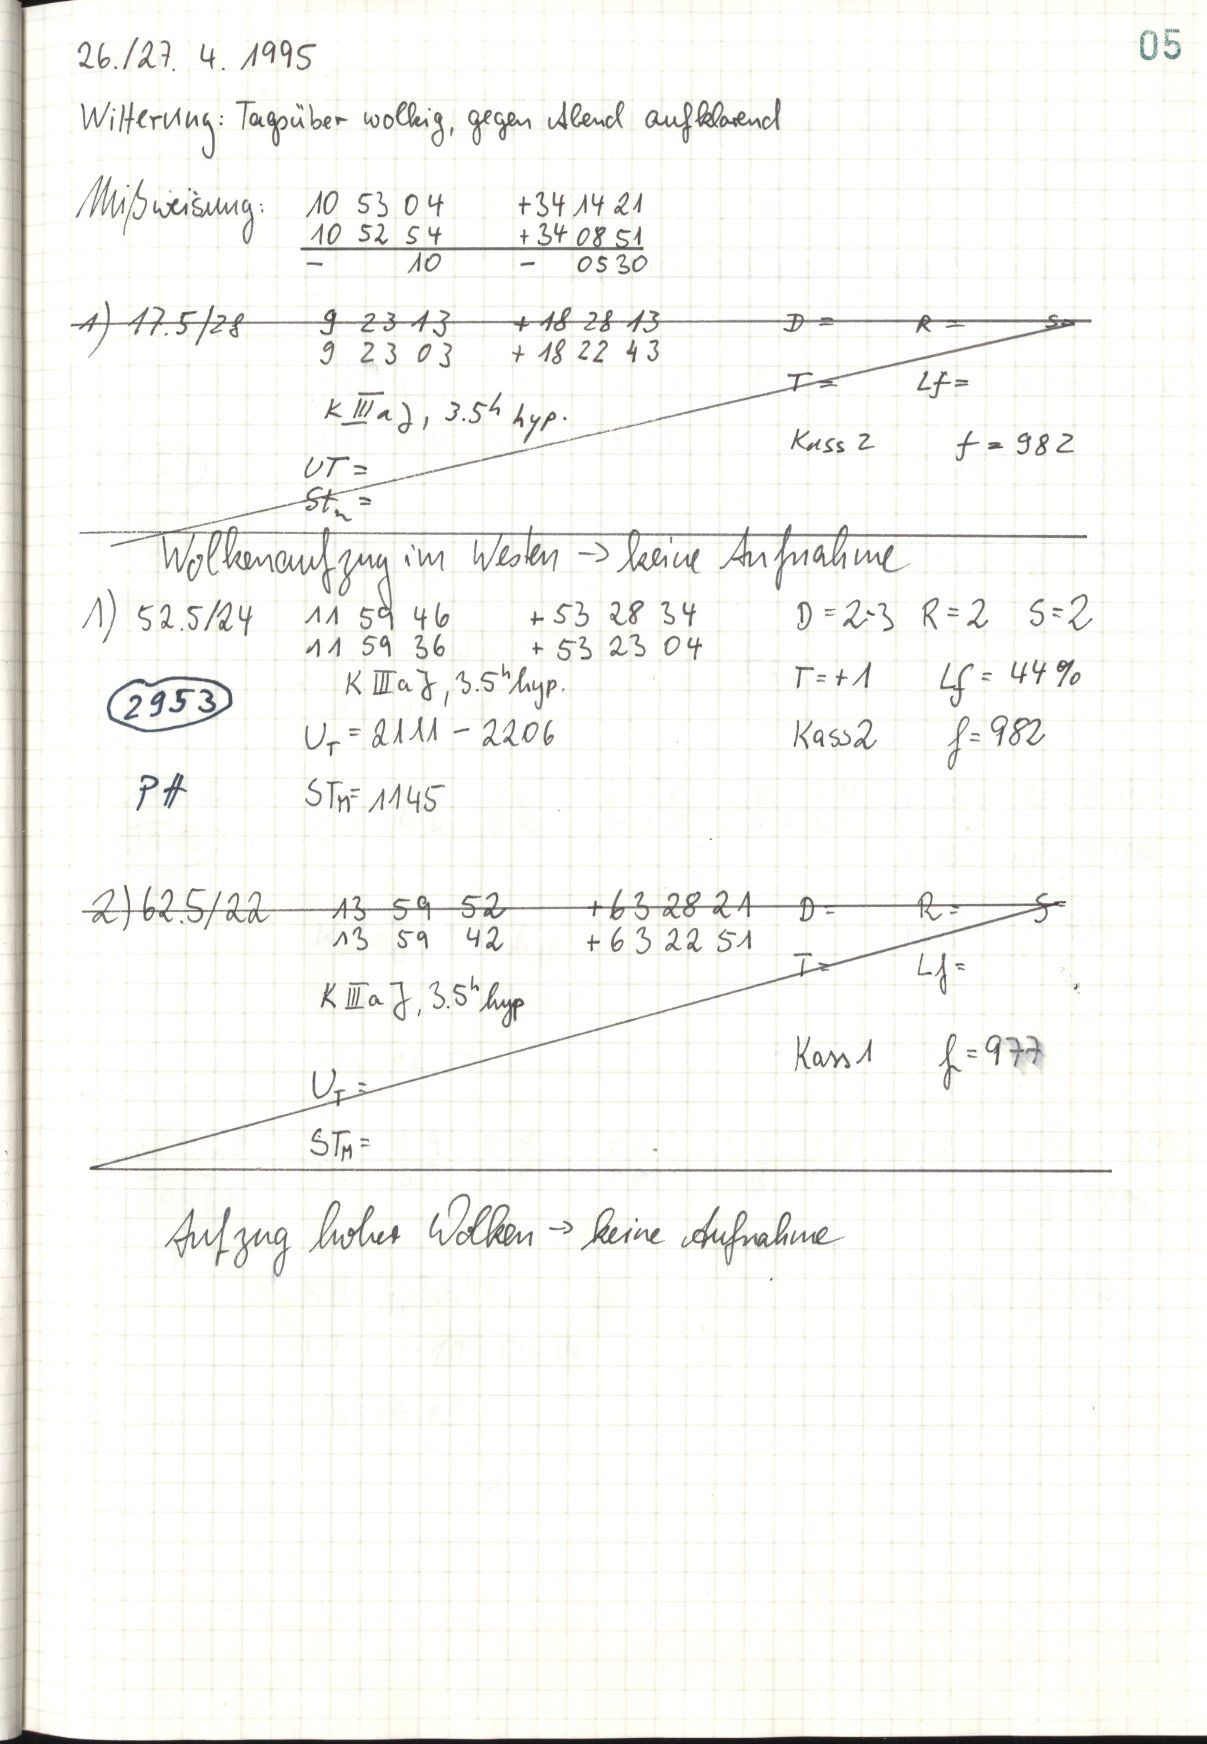 05
26./27. 4. 1995
Witterung: Tagsüber wolkig, gegen Abend aufklarend
Mißweisung: 10 53 04 +34 14 21
10 52 54 +34 08 51
- 10 - 05 30
1) 17.5/28 9 23 13 +18 28 13 D = R = S=
9 23 03 +18 22 43
T = Lf =
K III a J, 3.5h hyp.
Kass 2 f = 982
UT =
STM =
Wolkenaufzug im Westen → keine Aufnahme
1) 52.5/24 11 59 46 +53 28 34 D = 2-3 R = 2 S = 2
11 59 36 +53 23 04
K III a J, 3.5h hyp. T = +1 Lf = 44%
2953
UT = 2111 - 2206 Kass 2 f = 982
PH STM = 1145
2) 62.5/22 13 59 52 +63 28 21 D = R = S=
13 59 42 +63 22 51
T = Lf =
K III a J, 3.5h hyp
Kass 1 f = 977
UT =
STM =
Aufzug hoher Wolken → keine Aufnahme